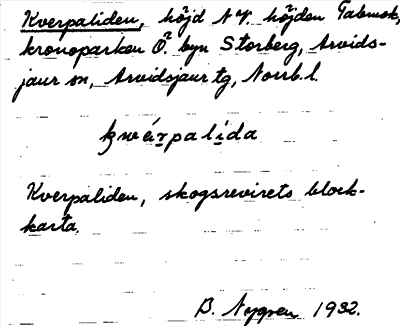 Kverpaliden, höjd N.V. höjden Tabmok,
kronoparken Ö. byn Storberg, Arvids-
jaur sn, Arvidsjaur tg, Norrb. l.
kwérpalida
Kverpaliden, skogsrevirets block-
karta.
B. Nygren 1932.